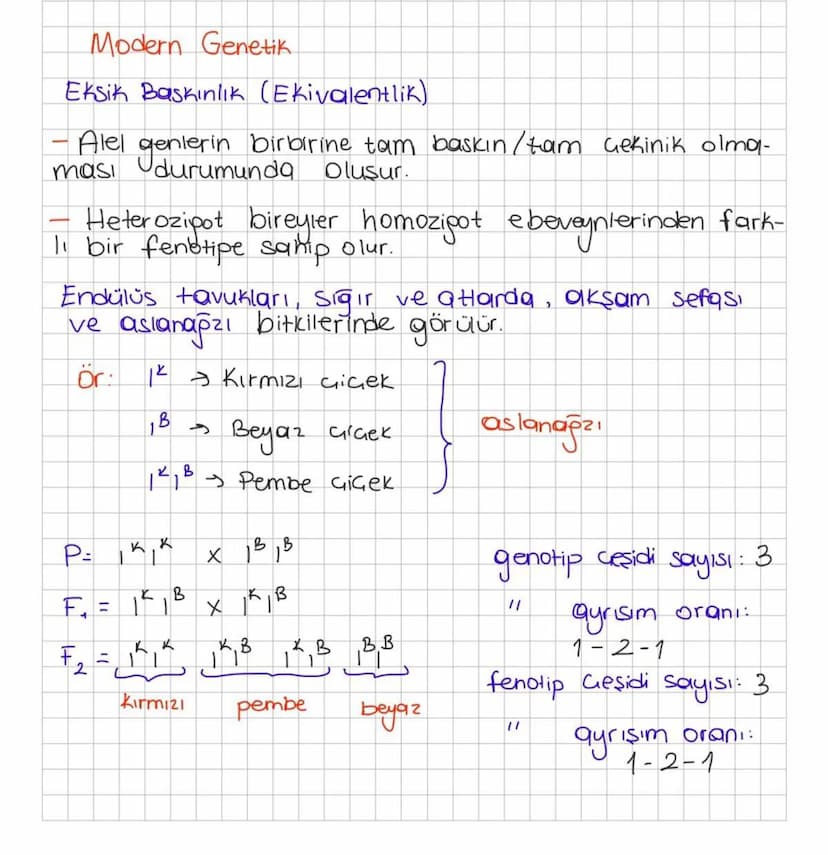 Modern Genetik
Eksik Baskınlık (Ekivalentlik)
– Alel genlerin birbirine tam baskın/tam çekinik olma-
ması durumunda oluşur.
– Heterozigot bireyler homozigot ebeveynlerinden fark-
lı bir fenotipe sahip olur.
Endülüs tavukları, sığır ve atlarda, akşam sefası
ve aslanağzı bitkilerinde görülür.
Ör: I^K → Kırmızı çiçek
I^B → Beyaz çiçek
I^K I^B → Pembe çiçek
aslanağzı
P= I^K I^K x I^B I^B
F₁ = I^K I^B x I^K I^B
F₂ = I^K I^K I^K I^B I^K I^B I^B I^B
kırmızı pembe beyaz
genotip çeşidi sayısı: 3
" ayrışım oranı:
1-2-1
fenotip çeşidi sayısı: 3
" ayrışım oranı:
1-2-1